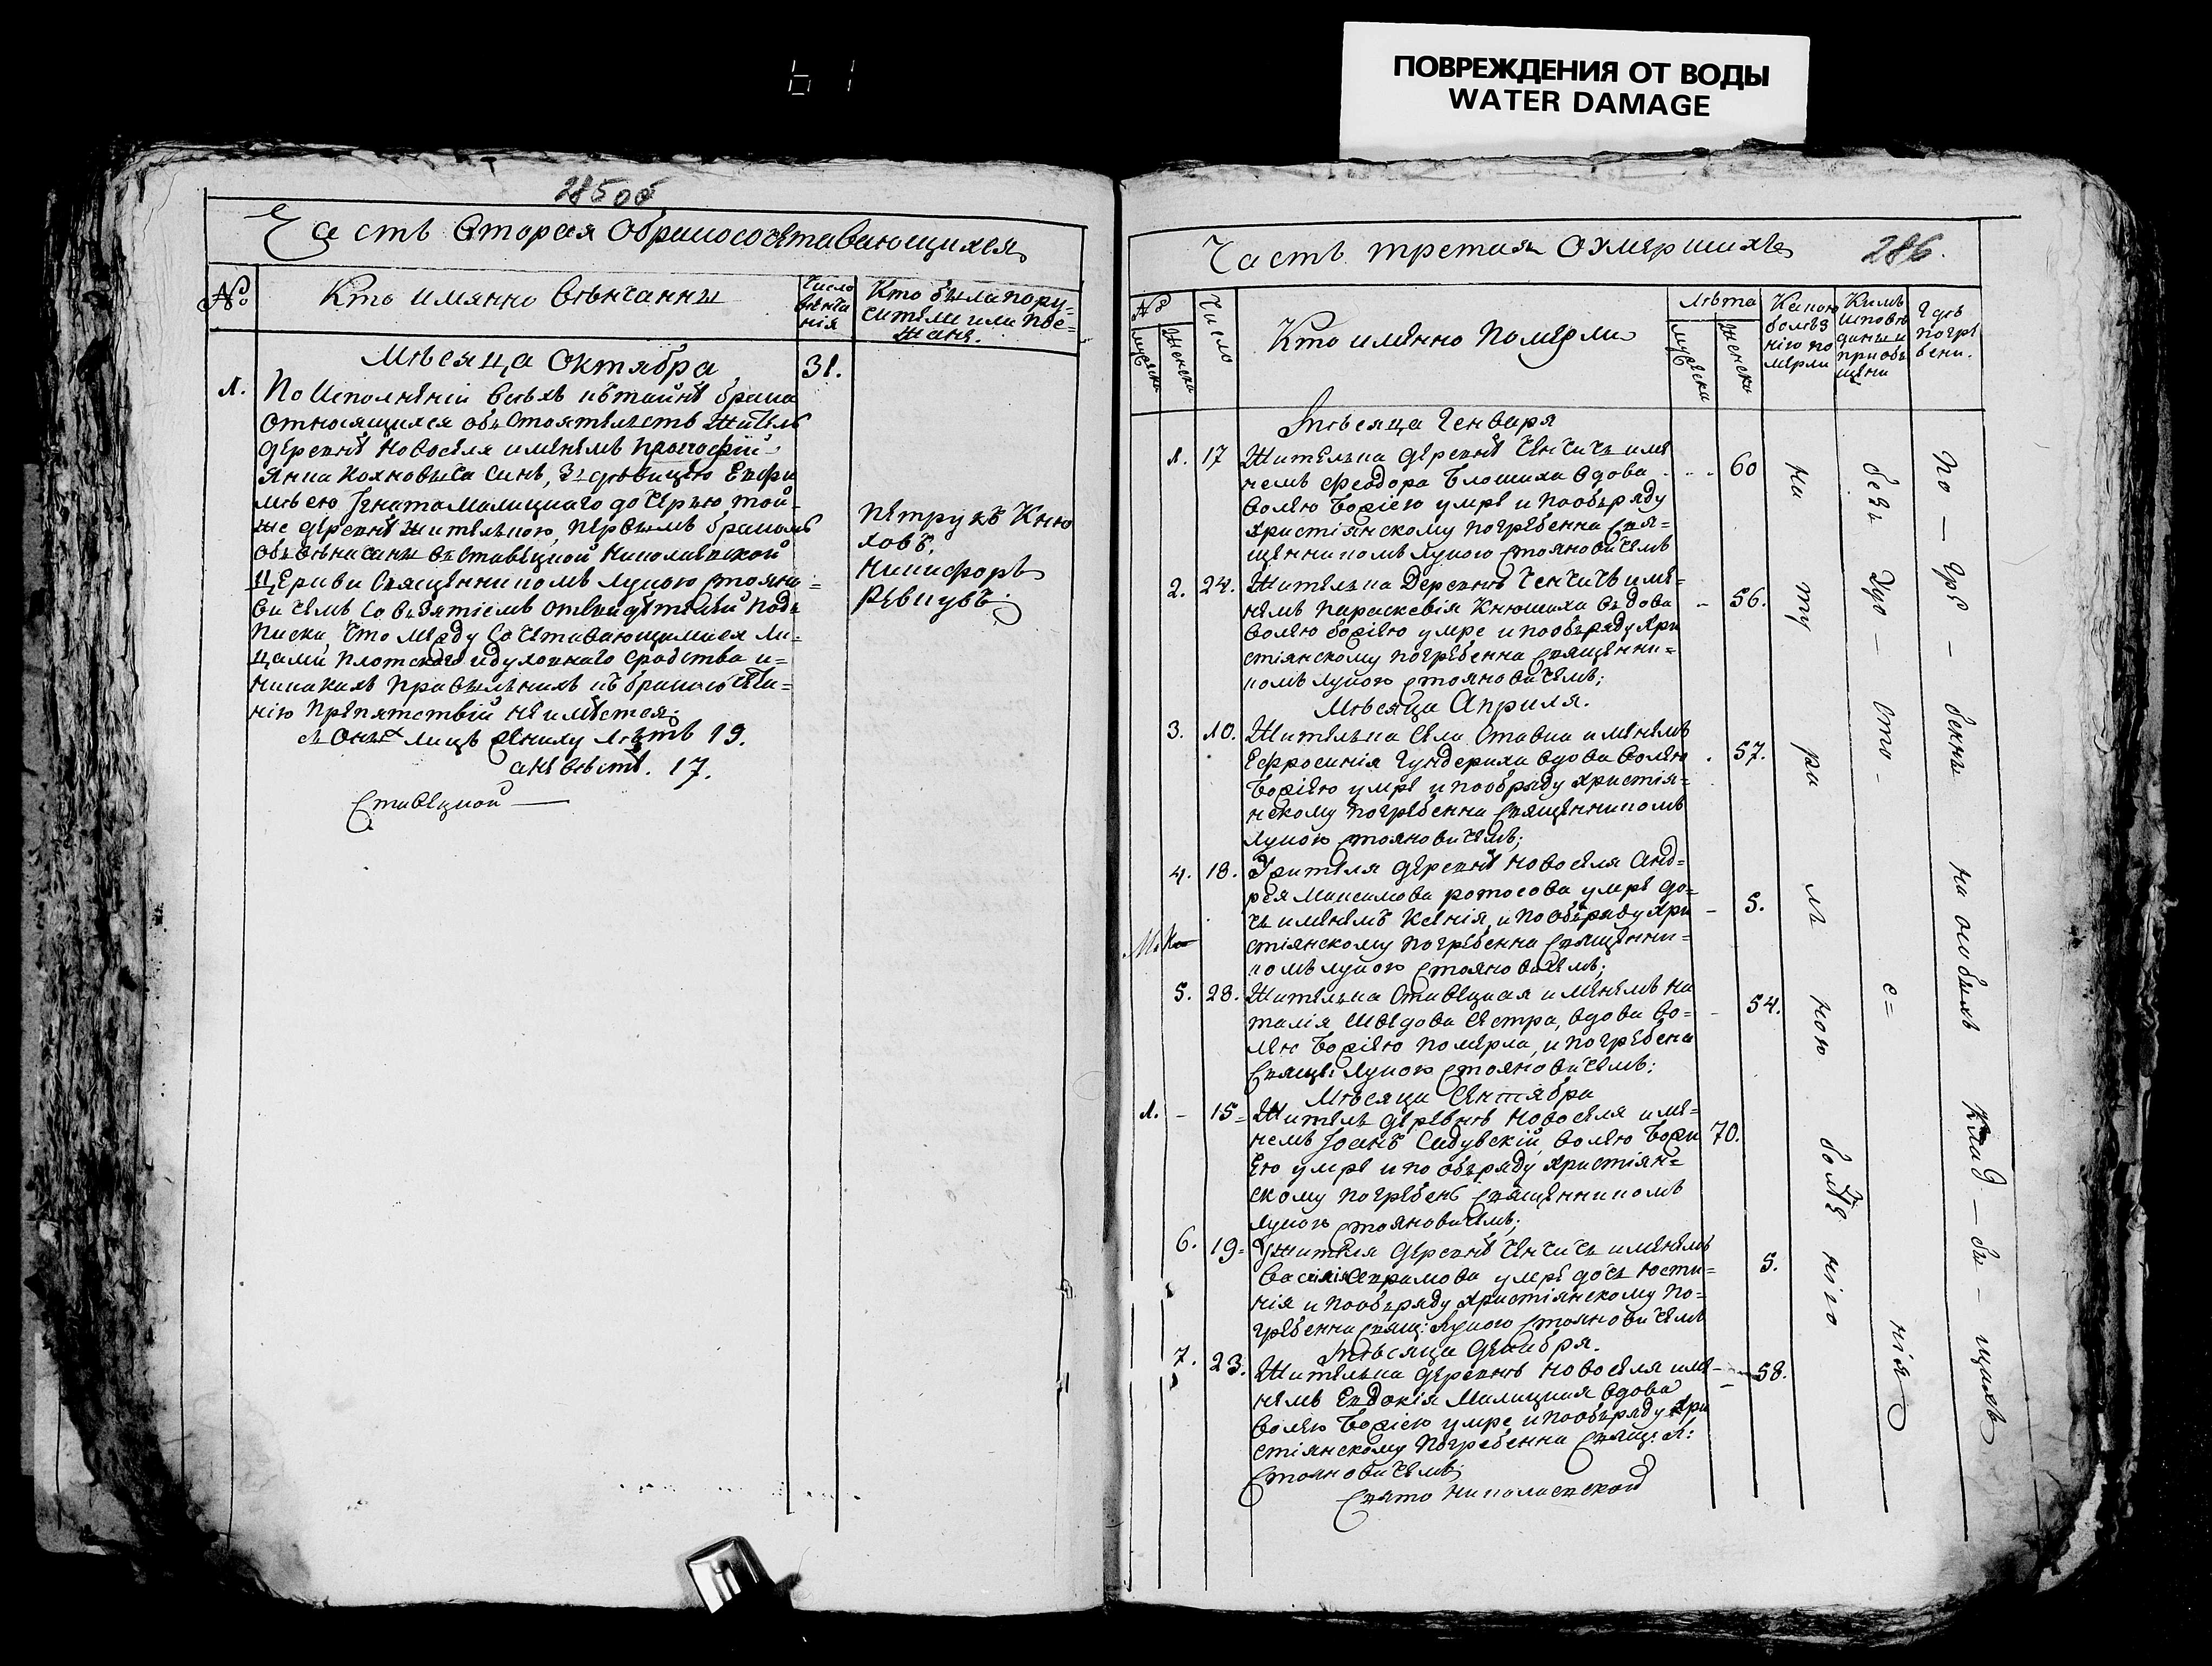 ПОВРЕЖДЕНИЯ ОТ ВОДЫ
WATER DAMAGE
285об
Часть вторая о бракосочетавающихся
№
Кто имянно вѣнчанны
Число
вѣнча
нія
Кто были пору=
чители или пое=
жане.
Мѣсяца Октября
31.
1.
По исполненіи всѣхъ къ тайнѣ брака
относящихся обстоятельствъ житель
деревнѣ Новоселя именемъ
синъ, зъ дѣвицею Евфи
мѣею Игната Малицкаго дочерью той
же деревнѣ жителькою, первымъ бракомъ
обвѣнчаны въ Ставецкой Николаевской
церкви священникомъ Лукою Стояно=
вичемъ со взятіемъ отъ свидѣтелей под
писки, что между сочетавающимися ли=
цами плотского и духовнаго сродства и=
никакихъ правильнихъ къ бракосочета=
нію препятствій не имѣется;
зъ оныхъ лицъ жениху лѣтъ 19.
а невѣстѣ. 17.
Ставецкой
Петрукъ Кню
ховъ,
Никифоръ
Ревкувъ.
Часть третая о умершихъ
286.
№
мужеска
женска
Число
Кто имянно померли
Лѣта
мужеска
женска
Какою
болѣз
нію по
мерли
Кимъ
исповѣ
даны и
приобщ
щени
Гдѣ
погре
бени.
Мѣсяца Генваря
1. 17 Жителька деревнѣ Ченчичъ име
немъ Феодора Блошиха вдова 60
волею Божіею умре и по обряду
христіянскому погребенна свя=
щенникомъ Лукою Стояновичемъ
2. 24. Жителька деревнѣ Ченчичъ име=
немъ Параскевія Кнюшиха вдова 56.
волею Божіею умре и по обряду хри
стіянскому погребенна священни=
комъ Лукою Стояновичемъ;
Мѣсяца Априля.
3. 10. Жителька села Ставка именемъ
Ефросинія Гундериха вдова волею 57.
Божіею умре и по обряду христія=
нскому погребенна священникомъ
Лукою Стояновичемъ;
4. 18. У жителя деревнѣ Новоселя Анд=
рея Максимова ротосова умре до=
чь именемъ Ксенія, и по обряду хри 5.
стіянскому погребенна священни=
комъ Лукою Стояновичемъ;
5. 28. Жителька Ставецкая именемъ На
талія Шведова сестра, вдова во= 54.
лею Божіею померла, и погребена
Свящ: Лукою Стояновичемъ:
Мѣсяца Сентября
1. 15 Житель деревнѣ Новоселя име=
немъ Іоанъ Садувскій волею Божі 70.
ею умре и по обряду христіян=
скому погребенъ священникомъ
Лукою Стояновичемъ;
6. 19 У жителя деревнѣ Ченчичъ именемъ
умре дочь Юсти= 5.
нія и по обряду христіянскому по=
гребенна свящ: Лукою Стояновичемъ
Мѣсяца Декабря.
7. 23. Жителька деревнѣ Новоселя име 58.
немъ Евдокія Малицкая вдова
волею Божіею умре и по обряду хри
стіянскому погребенна свящ: Л:
Стояновичемъ;
Свято Николаевской
на ту ра ль ною болѣз нію
безъ
по гре бенны на особихъ клад би щахъ